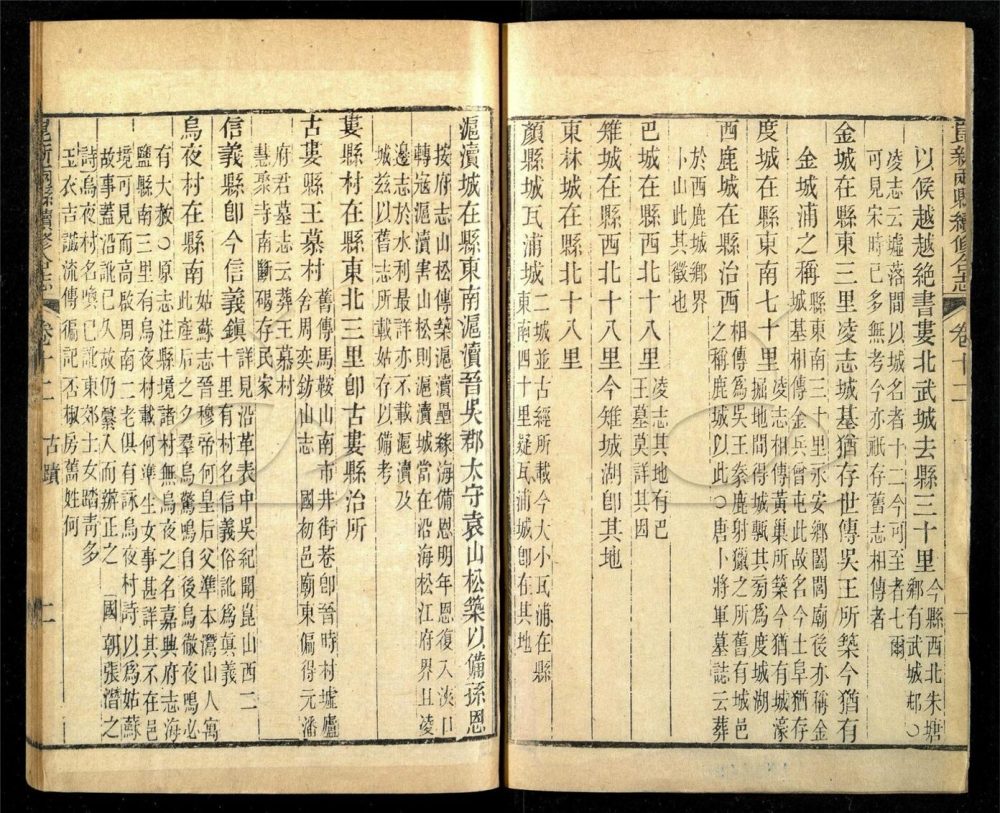 崑新兩縣續修合志 卷十二
以候越越絕書婁北武城去縣三十里今縣西北朱塘鄉有武城邨○
凌志云墟落間以城名者十二今可至者七爾
可見宋時已多無考今亦祇存舊志相傳者
金城在縣東三里凌志城基猶存世傳吳王所築今猶有
金城浦之稱縣東南三十里永安鄉閭閻廟後亦稱金城基相傳金兵曾屯此故名今土阜猶存
度城在縣東南七十里凌志相傳黃巢所築今猶有城濠掘地間得城甎其旁為度城湖
西鹿城在縣治西相傳為吳王豢鹿射獵之所舊有城邑鹿城以此○唐卜將軍墓誌云葬
於西鹿城鄉界
卜山此其徵也
巴城在縣西北十八里凌志其地有巴王墓莫詳其因
雉城在縣西北十八里今雉城湖卽其地
東林城在縣北十八里
顏縣城瓦浦城二城並古經所載今大小瓦浦在縣東南四十里疑瓦浦城卽在其地
滬瀆城在縣東南滬瀆晉吳郡太守袁山松築以備孫恩
按府志山松傳築滬瀆壘緣海備恩明年恩復入浹口
轉寇滬瀆害山松則滬瀆城當在沿海松江府界且凌
邊志於水利最詳亦不載滬瀆及
城茲以舊志所載姑存以備考
婁縣村在縣東北三里卽古婁縣治所
古婁縣王墓村舊傳馬鞍山南市井街巷卽晉時村墟廬舍周奕鈁山志 國初邑廟東偏得元潘
府君墓志云葬王墓村
慧聚寺南斷碣存民家
信義縣卽今信義鎮詳見沿革表中吳紀聞崑山西二十里有村名信義俗訛為眞義
烏夜村在縣南姑蘇志晉穆帝何皇后父準本灊山人寓此產后之夕羣烏驚鳴自後烏徹夜鳴必
有大赦○原志注縣境諸村無烏夜之名嘉興府志海
鹽縣南三里有烏夜村載何準生女事甚詳其不在邑
境可見而高啟周南二老俱有詠烏夜村詩以為姑蘇
故事蓋沿訛已久故仍纂入而辨正之 國朝張潛之
詩烏夜村名喚已訛東郊士女踏靑多
玉衣吉讖流傳徧記否椒房舊姓何
崑新兩縣續修合志 卷十二 古蹟 二